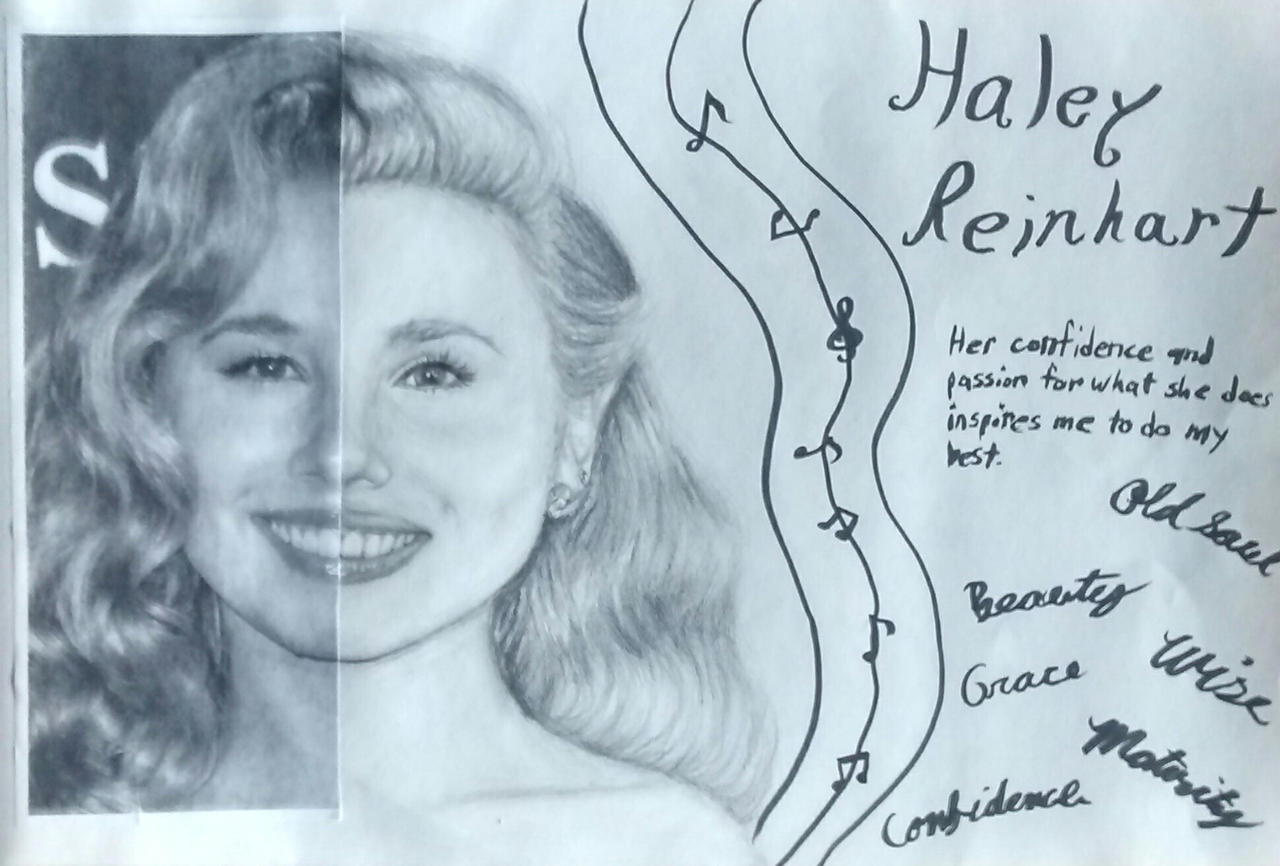 S
Haley
Reinhart
Her confidence and
passion for what she does
inspires me to do my
best.
Old Soul
Beauty
Wise
Grace
Maturity
Confidence